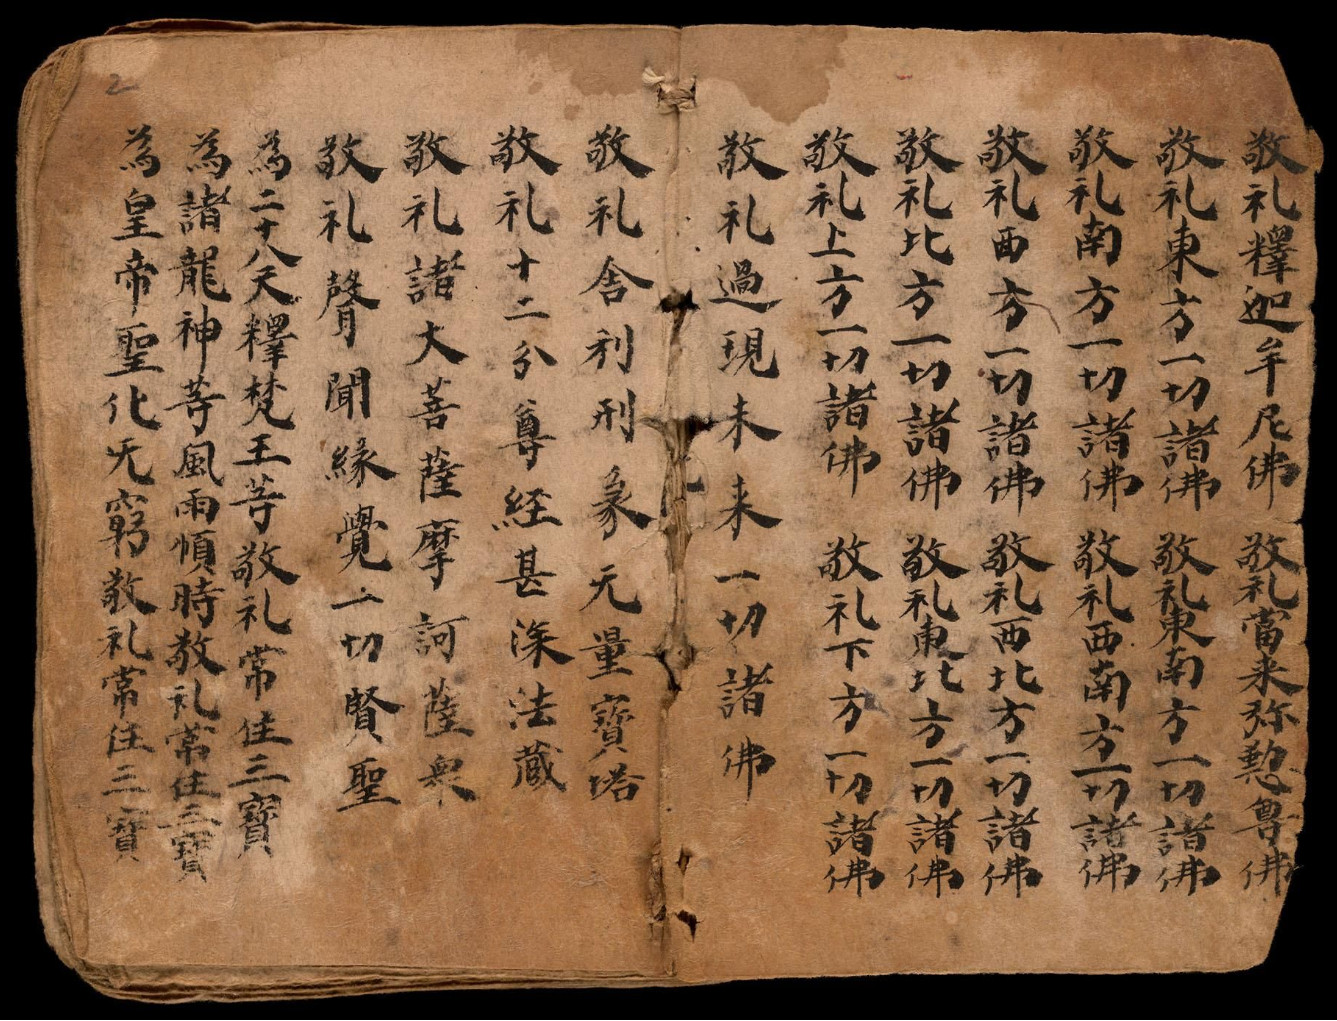 敬礼釋迦牟尼佛 敬礼當来弥勲尊佛
敬礼東方一切諸佛 敬礼東南方一切諸佛
敬礼南方一切諸佛 敬礼西南方一切諸佛
敬礼西方一切諸佛 敬礼西北方一切諸佛
敬礼北方一切諸佛 敬礼東北方一切諸佛
敬礼上方一切諸佛 敬礼下方一切諸佛
敬礼過現未来一切諸佛
敬礼舍利刑象无量寶塔
敬礼十二分尊経甚深法蔵
敬礼諸大菩薩摩訶薩衆
敬礼聲聞縁覺一切賢聖
為二十八天釋梵王等敬礼常住三寶
為諸龍神等風雨順時敬礼常住三寶
為皇帝聖化无窮敬礼常住三寶
2